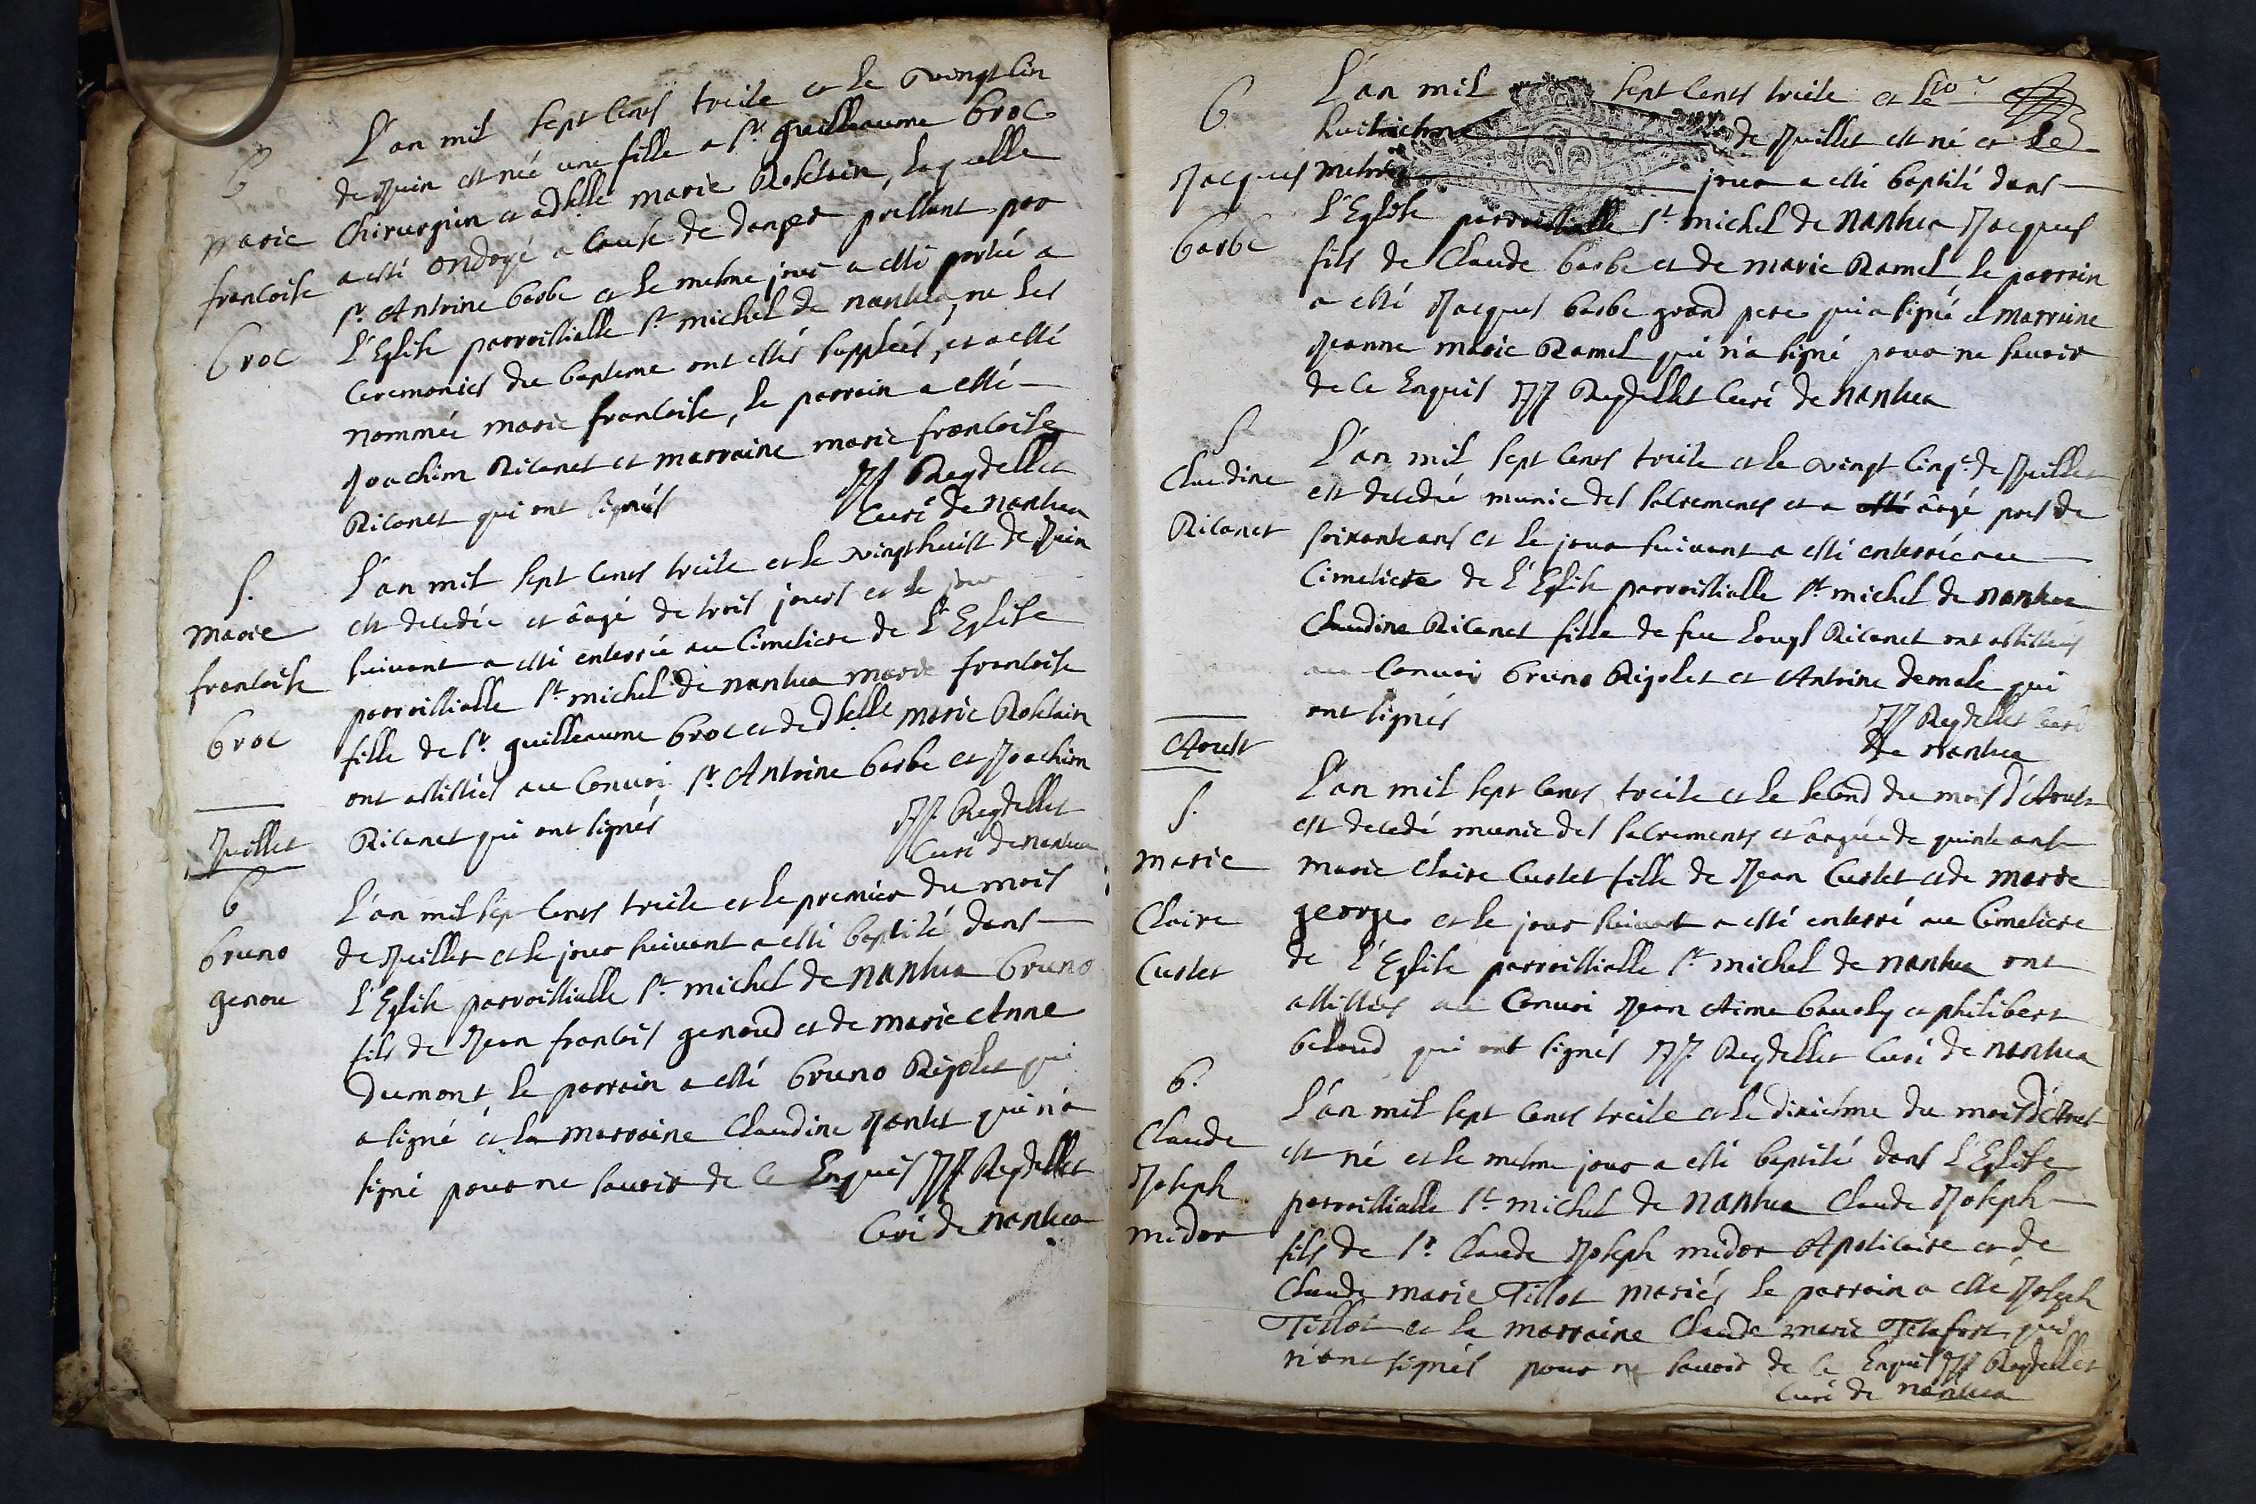 B
marie
francoise
broc
L'an mil sept cents treize et le vingt cin
de Juin est née une fille a Sr. guilleaume broc
Chirurgien et a dslle marie Rosselain, laquelle
a esté ondoyé a cause de danger pressant par
Sr. Antoine barbe et le mesme jour a esté portée a
l'Eglise parroissialle St. michel de nantua, ne les
Ceremonies du bapteme ont estés supplées, et a esté
nommée marie francoise, le parrain a esté
Joachim Ricanet et marraine marie francoise
Ricanet qui ont signés JJ Reydellet
Curé de nantua
S.
marie
francoise
broc
L'an mil sept cents treize et le vingt huict de Juin
est decedée et âagé de trois jours et le jour
suivant a esté enterrée au Cimetiere de l'Eglise
parroissialle St. michel de nantua marie francoise
fille de Sr. guilleaume broc et de dslle marie Rosselain
ont assistés au Convoi Sr. Antoine barbe et Joachim
Ricanet qui ont signés JJ. Reydellet
Curé de nantua
Juillet
B
bruno
genou
L'an mil sept cents treize et le premier du mois
de Juillet et le jour suivant a esté baptisé dans
l'Eglise parroissialle St. michel de nantua bruno
fils de Jean francois genoud et de marie Anne
Dumont, le parrain a esté bruno Rigolet qui
a signé et la marraine Claudine Jantet qui n'a
signé pour ne savoir de ce Enquis JJ. Reydellet
Curé de nantua
B
Jacques
barbe
L'an mil sept cents treize et le 10e
huitiesme de Juillet est né et le
mesme jour a esté baptisé dans
l'Eglise parroissialle St. michel de nantua Jacques
fils de Claude barbe et de marie Ramel le parrain
a esté Jacques barbe grand pere qui a signé et marraine
Jeanne marie Ramel qui n'a signé pour ne savoir
de ce Enquis JJ Reydellet Curé de nantua
S.
Claudine
Ricanet
L'an mil sept cents treize et le vingt cinqe. de Juillet
est decedée munie des sacrements et a esté âagé pres de
soixante ans et le jour suivant a esté enterrée au
Cimetiere de l'Eglise parroissialle St. michel de nantua
Claudine Ricanet fille de feu Louys Ricanet ont assistés
au Convoi bruno Rigolet et Antoine demale qui
ont signés JJ Reydellet Curé
de nantua
Aoust
S.
marie
Claire
Curtet
L'an mil sept cents treize et le second du mois d'Aoust
est decedé munie des sacrements et âagée de quinze ans
marie Claire Curtet fille de Jean Curtet et de marie
george et le jour suivant a esté enterré au Cimetiere
de l'Eglise parroissialle St. michel de nantua ont
assistés au Convoi Jean Aime et philibert
beloud qui ont signés JJ. Reydellet Curé de nantua
B.
Claude
Joseph
midor
L'an mil sept cents treize et le dixiesme du mois d'Aoust
est né et le mesme jour a esté baptisé dans l'Eglise
parroissialle St. michel de nantua Claude Joseph
fils de Sr. Claude Joseph midor Apoticaire et de
Claude marie Tillot mariés le parrain a esté Joseph
Tillot et la marraine Claude marie qui
n'ont signés pour ne savoir de ce Enquis JJ Reydellet
Curé de nantua